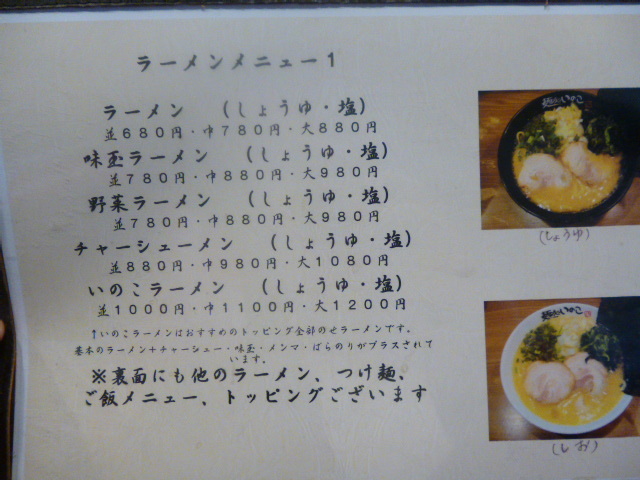 ラーメンメニュー1
ラーメン （しょうゆ・塩）
並680円・中780円・大880円
味玉ラーメン （しょうゆ・塩）
並780円・中880円・大980円
野菜ラーメン （しょうゆ・塩）
並780円・中880円・大980円
チャーシューメン （しょうゆ・塩）
並880円・中980円・大1080円
いのこラーメン （しょうゆ・塩）
並1000円・中1100円・大1200円
↑いのこラーメンはおすすめのトッピング全部のせラーメンです。
基本のラーメン+チャーシュー・味玉・メンマ・ばらのりがプラスされて
います。
※裏面にも他のラーメン、つけ麺、
ご飯メニュー、トッピングございます
いのこ
(しょうゆ)
いのこ
(しお)